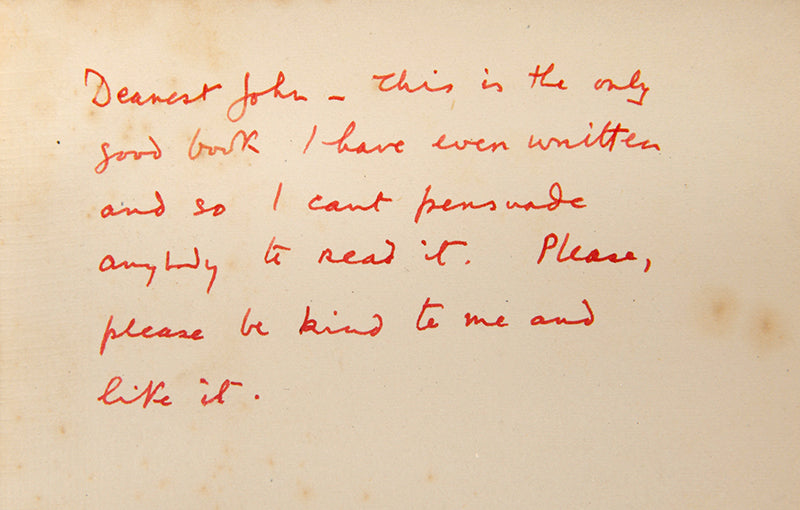 Dearest John – This is the only
good book I have ever written
and so I cant persuade
anybody to read it. Please,
please be kind to me and
like it.